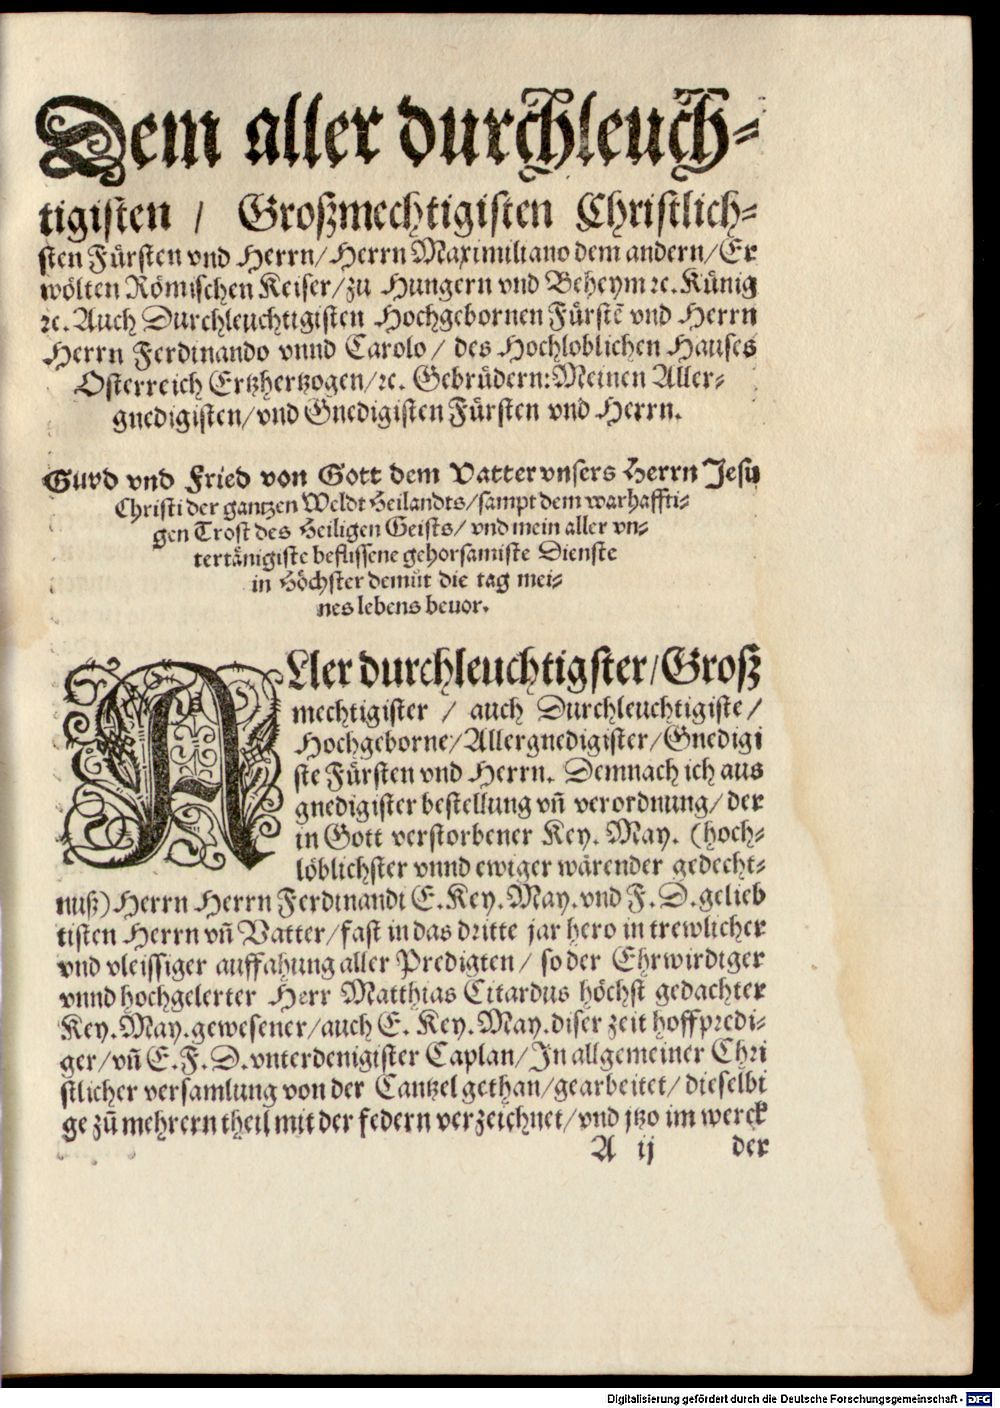 Dem aller durchleuch-
tigisten / Großmechtigisten Christlich-
sten Fürsten vnd Herrn/ Herrn Maximiliano dem andern/ Er
wölten Römischen Keiser/ zu Hungern vnd Beheym ꝛc. Künig
ꝛc. Auch Durchleuchtigisten Hochgebornen Fürstē vnd Herrn
Herrn Ferdinando vnnd Carolo / des Hochloblichen Hauses
Osterreich Ertzhertzogen/ ꝛc. Gebrüdern: Meinen Aller-
gnedigisten/ vnd Gnedigisten Fürsten vnd Herrn.
Gnad vnd Fried von Gott dem Vatter vnsers Herrn Jesu
Christi der gantzen Weldt Heilandts/ sampt dem warhaffti-
gen Trost des Heiligen Geists/ vnd mein aller vn-
tertänigiste beflissene gehorsamiste Dienste
in Höchster demüt die tag mei-
nes lebens beuor.
ALler durchleuchtigster/ Groß
mechtigister / auch Durchleuchtigiste/
Hochgeborne/ Allergnedigister/ Gnedigi
ste Fürsten vnd Herrn. Demnach ich aus
gnedigister bestellung vn̄ verordnung/ der
in Gott verstorbener Key. May. (hoch-
löblichster vnnd ewiger wärender gedecht-
nuß) Herrn Herrn Ferdinandi E. Key. May. vnd F. D. gelieb
tisten Herrn vn̄ Vatter/ fast in das dritte jar hero in trewlicher
vnd vleissiger auffahung aller Predigten / so der Ehrwirdiger
vnnd hochgelerter Herr Matthias Citardus höchst gedachter
Key. May. gewesener/ auch E. Key. May. diser zeit hoffpredi-
ger/ vn̄ E. F. D. vnterdenigister Caplan/ In allgemeiner Chri
stlicher versamlung von der Cantzel gethan/ gearbeitet/ dieselbi
ge zů mehrern theil mit der federn verzeichnet/ vnd jtzo im werck
A ij der
Digitalisierung gefördert durch die Deutsche Forschungsgemeinschaft - DFG